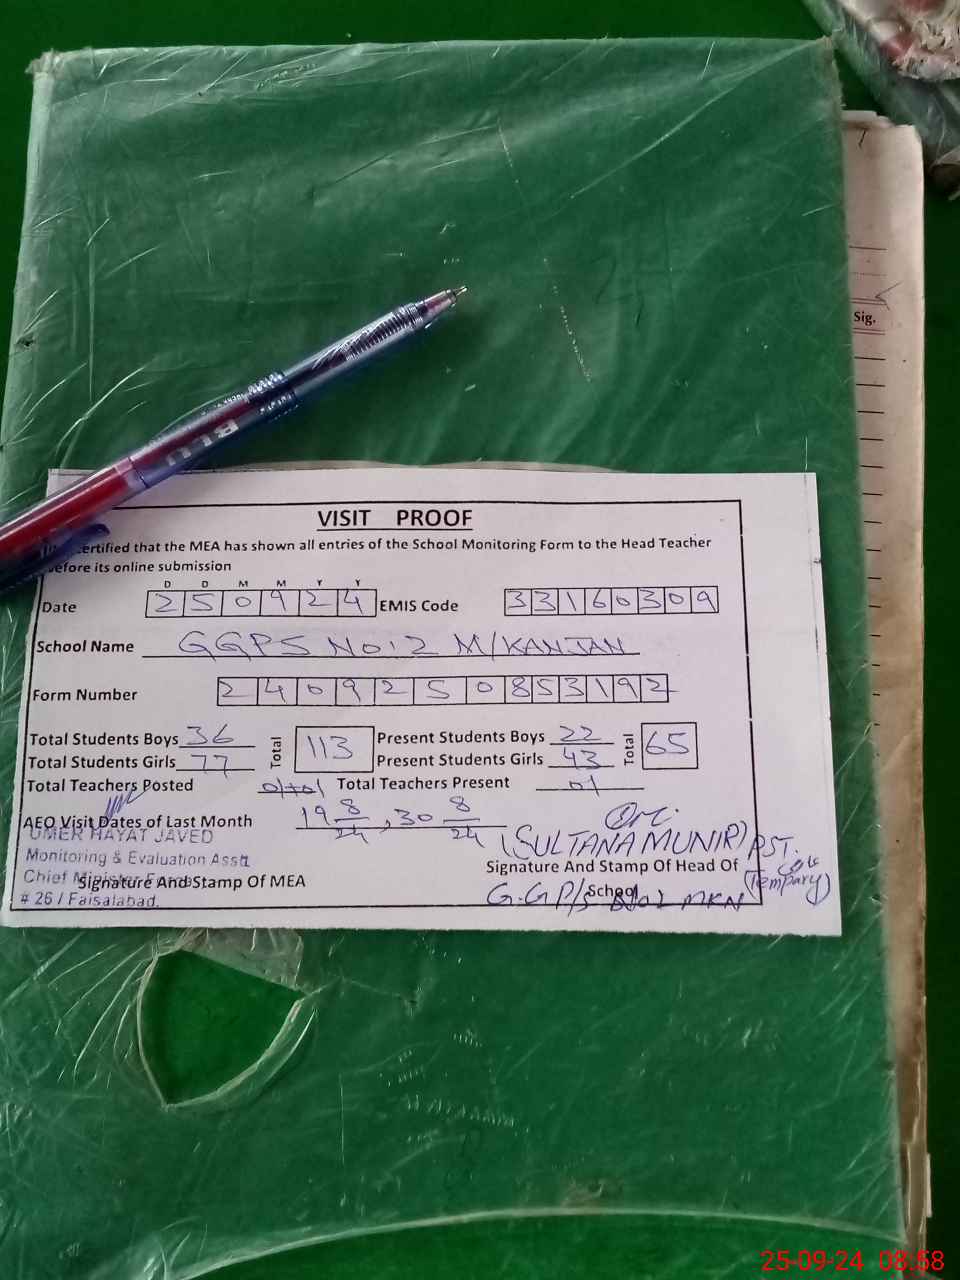 Sig.
VISIT PROOF
certified that the MEA has shown all entries of the School Monitoring Form to the Head Teacher
before its online submission
D D M M Y Y
Date 2 5 0 9 2 4 EMIS Code 3 3 1 6 0 3 0 9
School Name GGPS No: 2 M/KANJAN
Form Number 2 4 0 9 2 5 0 8 5 3 1 9 2
Total Students Boys 36 Total 113 Present Students Boys 22 Total 65
Total Students Girls 77 Present Students Girls 43
Total Teachers Posted 01+01 Total Teachers Present 01
AEO Visit Dates of Last Month 19 8/24, 30 8/24
(SULTANA MUNIR) PST.
UMER HAYAT JAVED
Monitoring & Evaluation Asstt
Chief Minister Force
# 26 / Faisalabad.
Signature And Stamp Of MEA
Signature And Stamp Of Head Of
School
G.G P/S No 2 MKN
(Tempary)
25-09-24 08:58